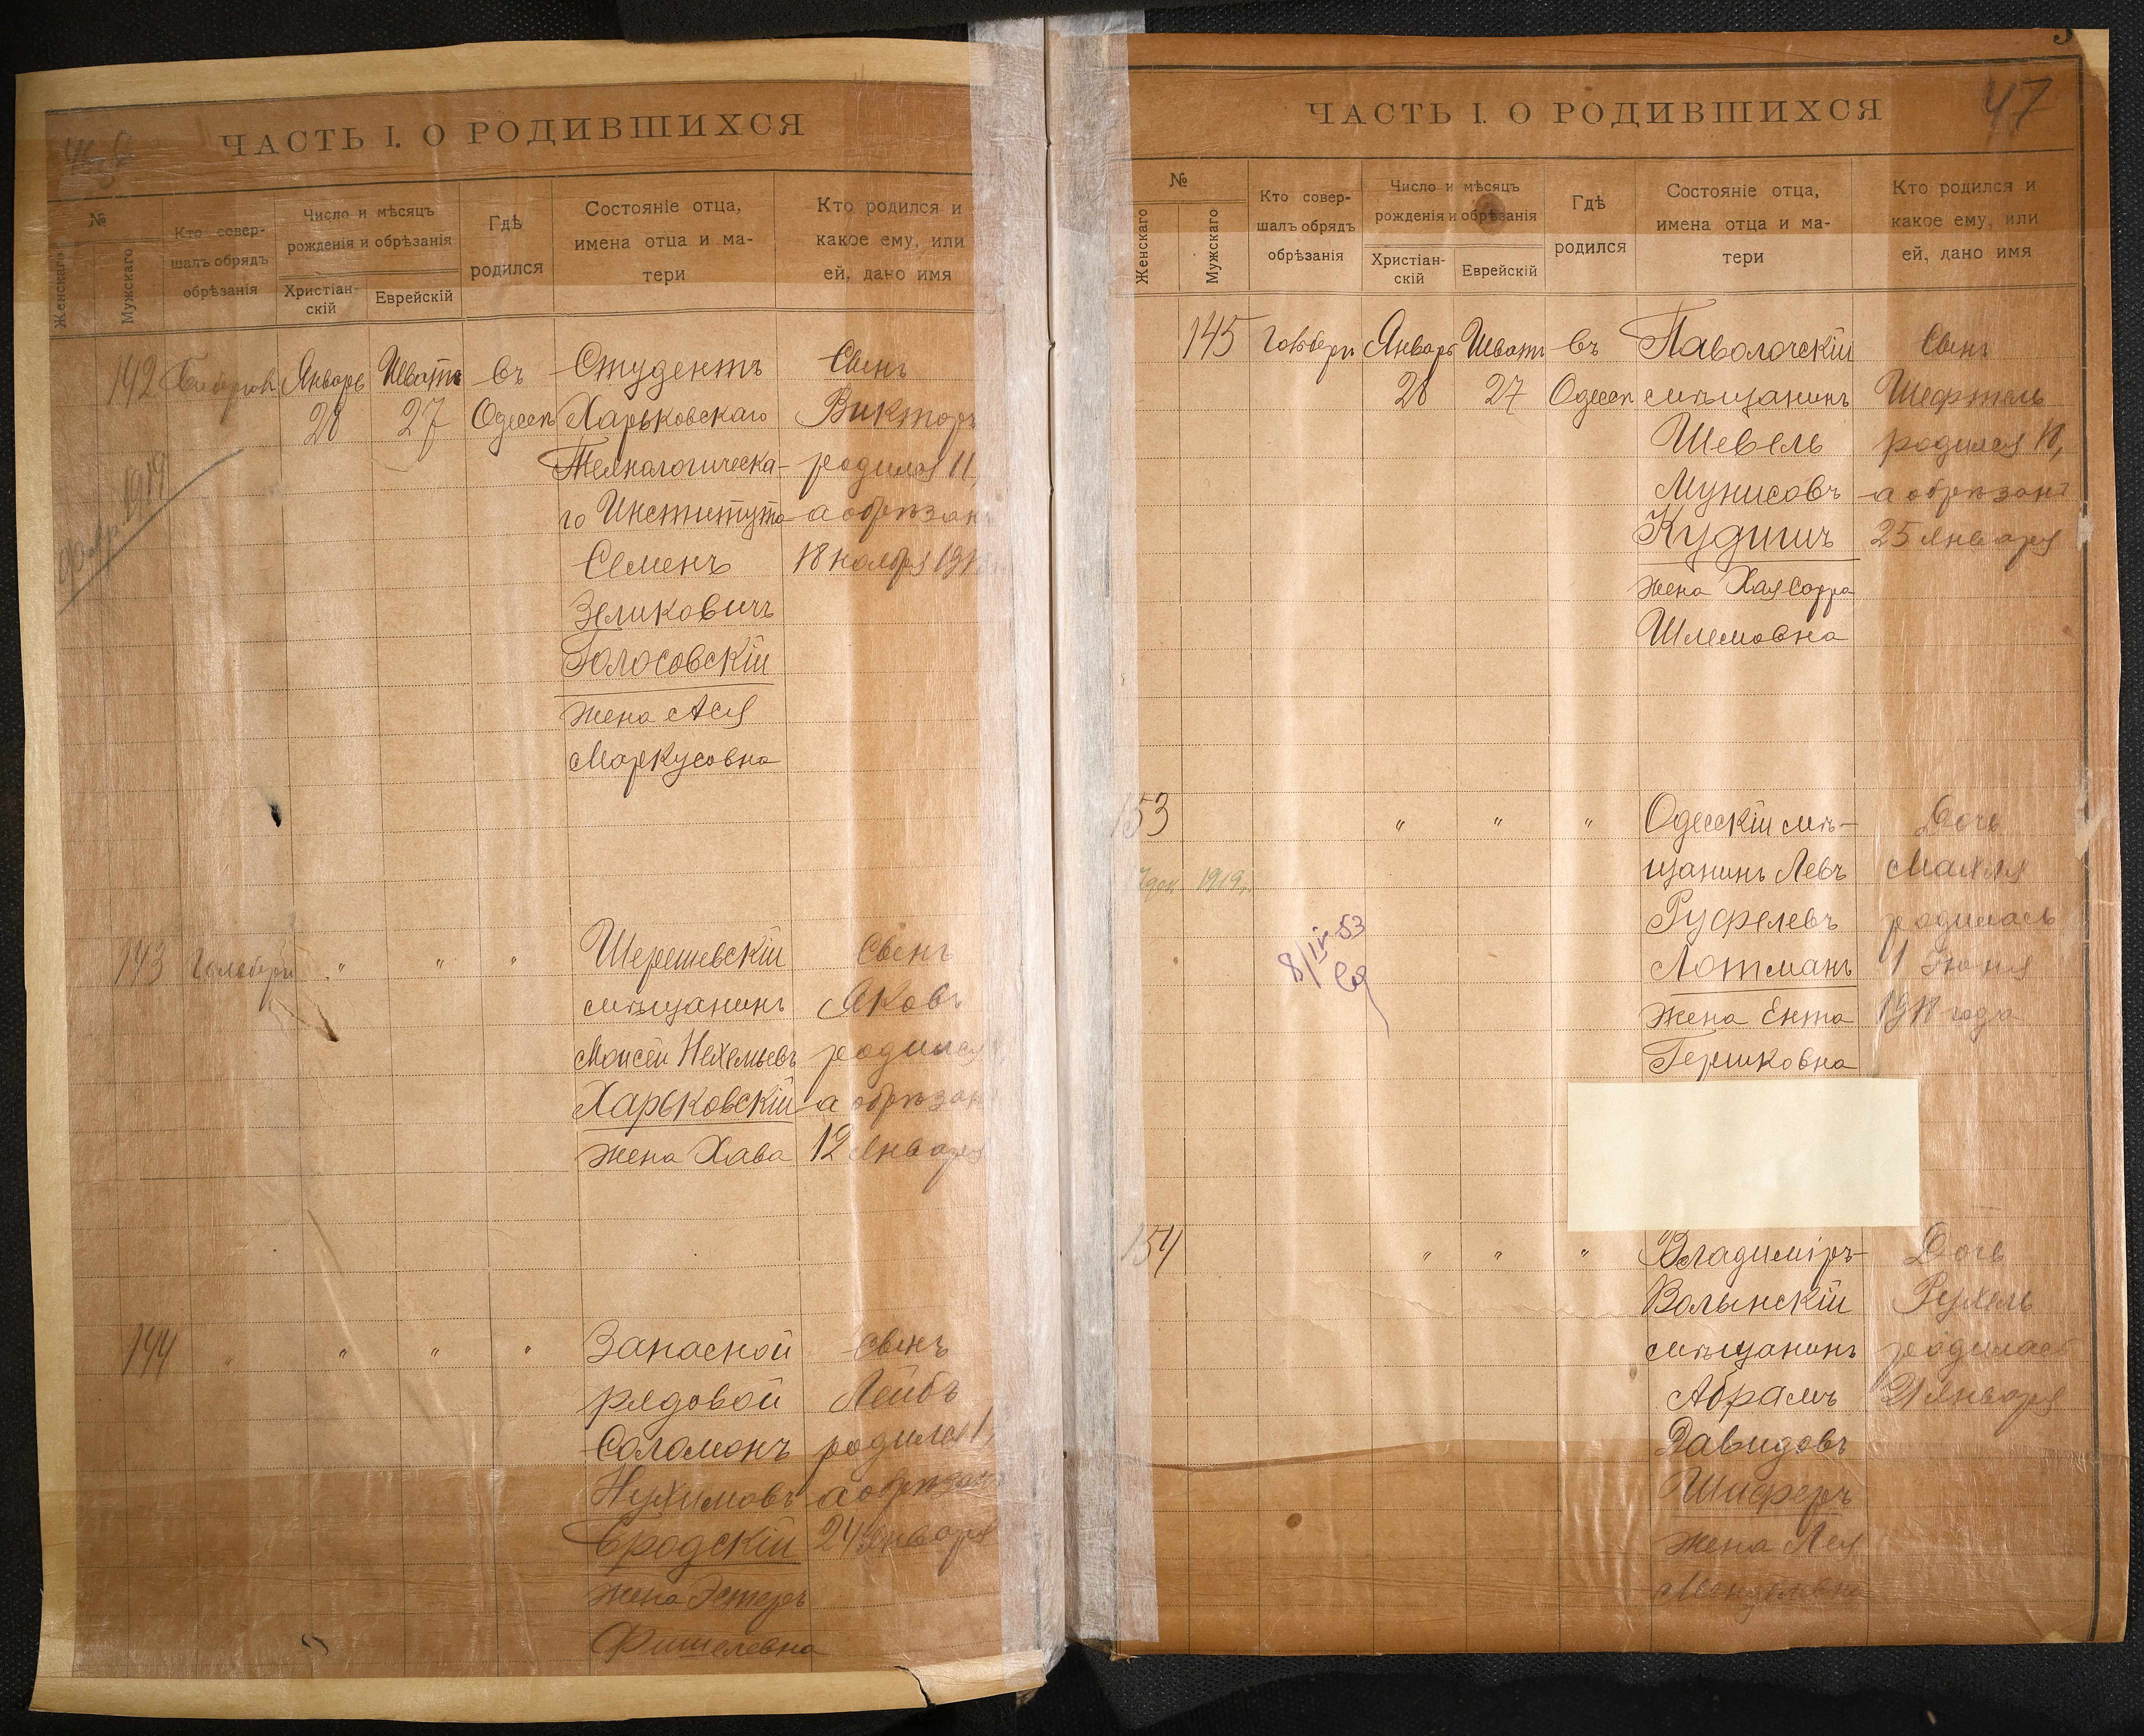 ЧАСТЬ I. О РОДИВШИХСЯ
№
Женскаго
Мужскаго
Кто совер-
шалъ обрядъ
обрѣзанія
Число и мѣсяцъ
рожденія и обрѣзанія
Христіан-
скій
Еврейскій
Гдѣ
родился
Состояніе отца,
имена отца и ма-
тери
Кто родился и
какое ему, или
ей, дано имя
142
Январь
28
Шватъ
27
въ
Одессѣ
Студентъ
Харьковскаго
Технологическа-
го Института
Семенъ
Зеликовичъ
Голосовскій
жена Ася
Маркусовна
Сынъ
Викторъ
родился 11,
а обрѣзанъ
18 ноября
1919
143
"
"
"
Шерешевскій
мѣщанинъ
Моисей Нехемьевъ
Харьковскій
жена Хава
Сынъ
Яковъ
родился
а обрѣзанъ
12 Января
144
"
"
"
"
Запасной
рядовой
Соломонъ
Нухимовъ
Бродскій
жена Эстеръ
Фишелевна
Сынъ
Лейбъ
родился
а обрѣзанъ
24 Января
ЧАСТЬ I. О РОДИВШИХСЯ
47
№
Женскаго
Мужскаго
Кто совер-
шалъ обрядъ
обрѣзанія
Число и мѣсяцъ
рожденія и обрѣзанія
Христіан-
скій
Еврейскій
Гдѣ
родился
Состояніе отца,
имена отца и ма-
тери
Кто родился и
какое ему, или
ей, дано имя
145
Январь
28
Шватъ
27
въ
Одессѣ
Паволочскій
мѣщанинъ
Шевель
Мунисовъ
Кудишъ
жена Хая Сарра
Шлемовна
Сынъ
Шефтель
родился 18,
а обрѣзанъ
25 Января
153
"
"
"
Одесскій мѣ-
щанинъ Левъ
Руфелевъ
Лотманъ
жена Ента
Гершковна
Дочь
Махля
родилась
1 Іюня
1918 года
1919 г.
8/IV 53
154
"
"
"
Владиміръ-
Волынскій
мѣщанинъ
Абрамъ
Давидовъ
Шиферъ
жена Лея
Дочь
Рухель
родилась
21 Января